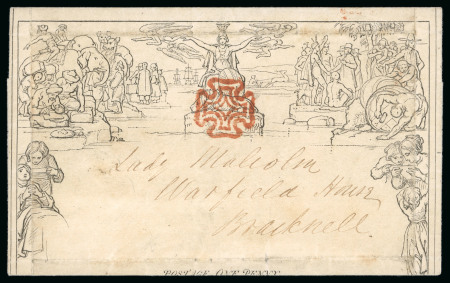 Lady Malcolm
Warfield House
Bracknell.
POSTAGE ONE PENNY